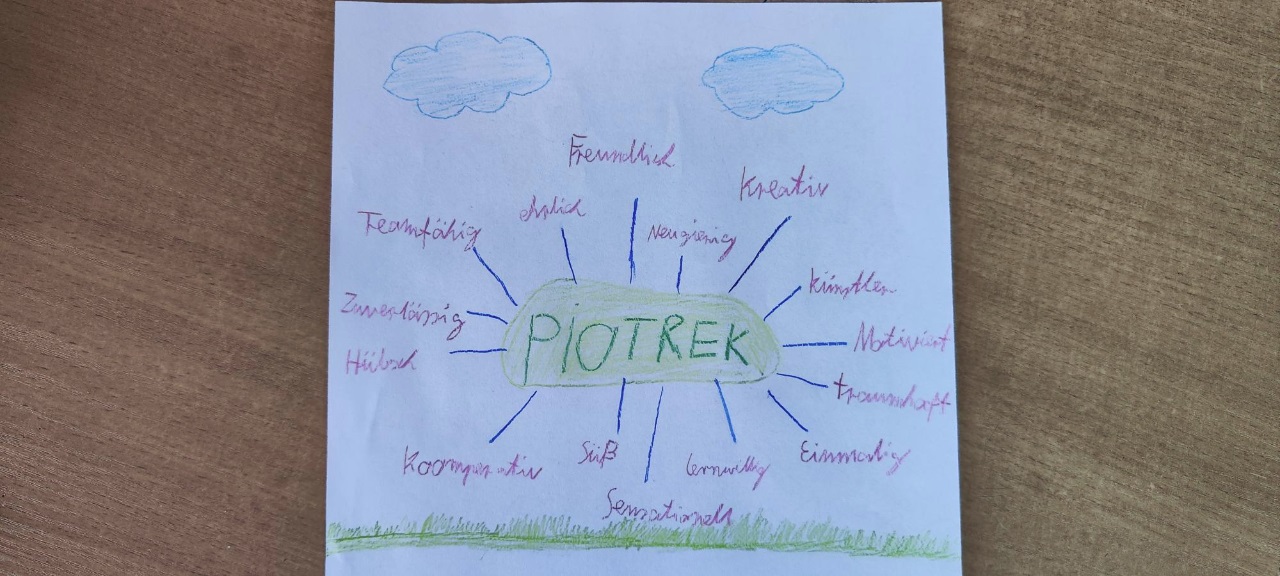 Freundlich
Kreativ
ehrlich
Teamfähig
Neugierig
Künstler
Zuverlässig
PIOTREK
Motiviert
Hübsch
traumhaft
Süß
Einmalig
Koomperativ
lernwillig
Sensationell